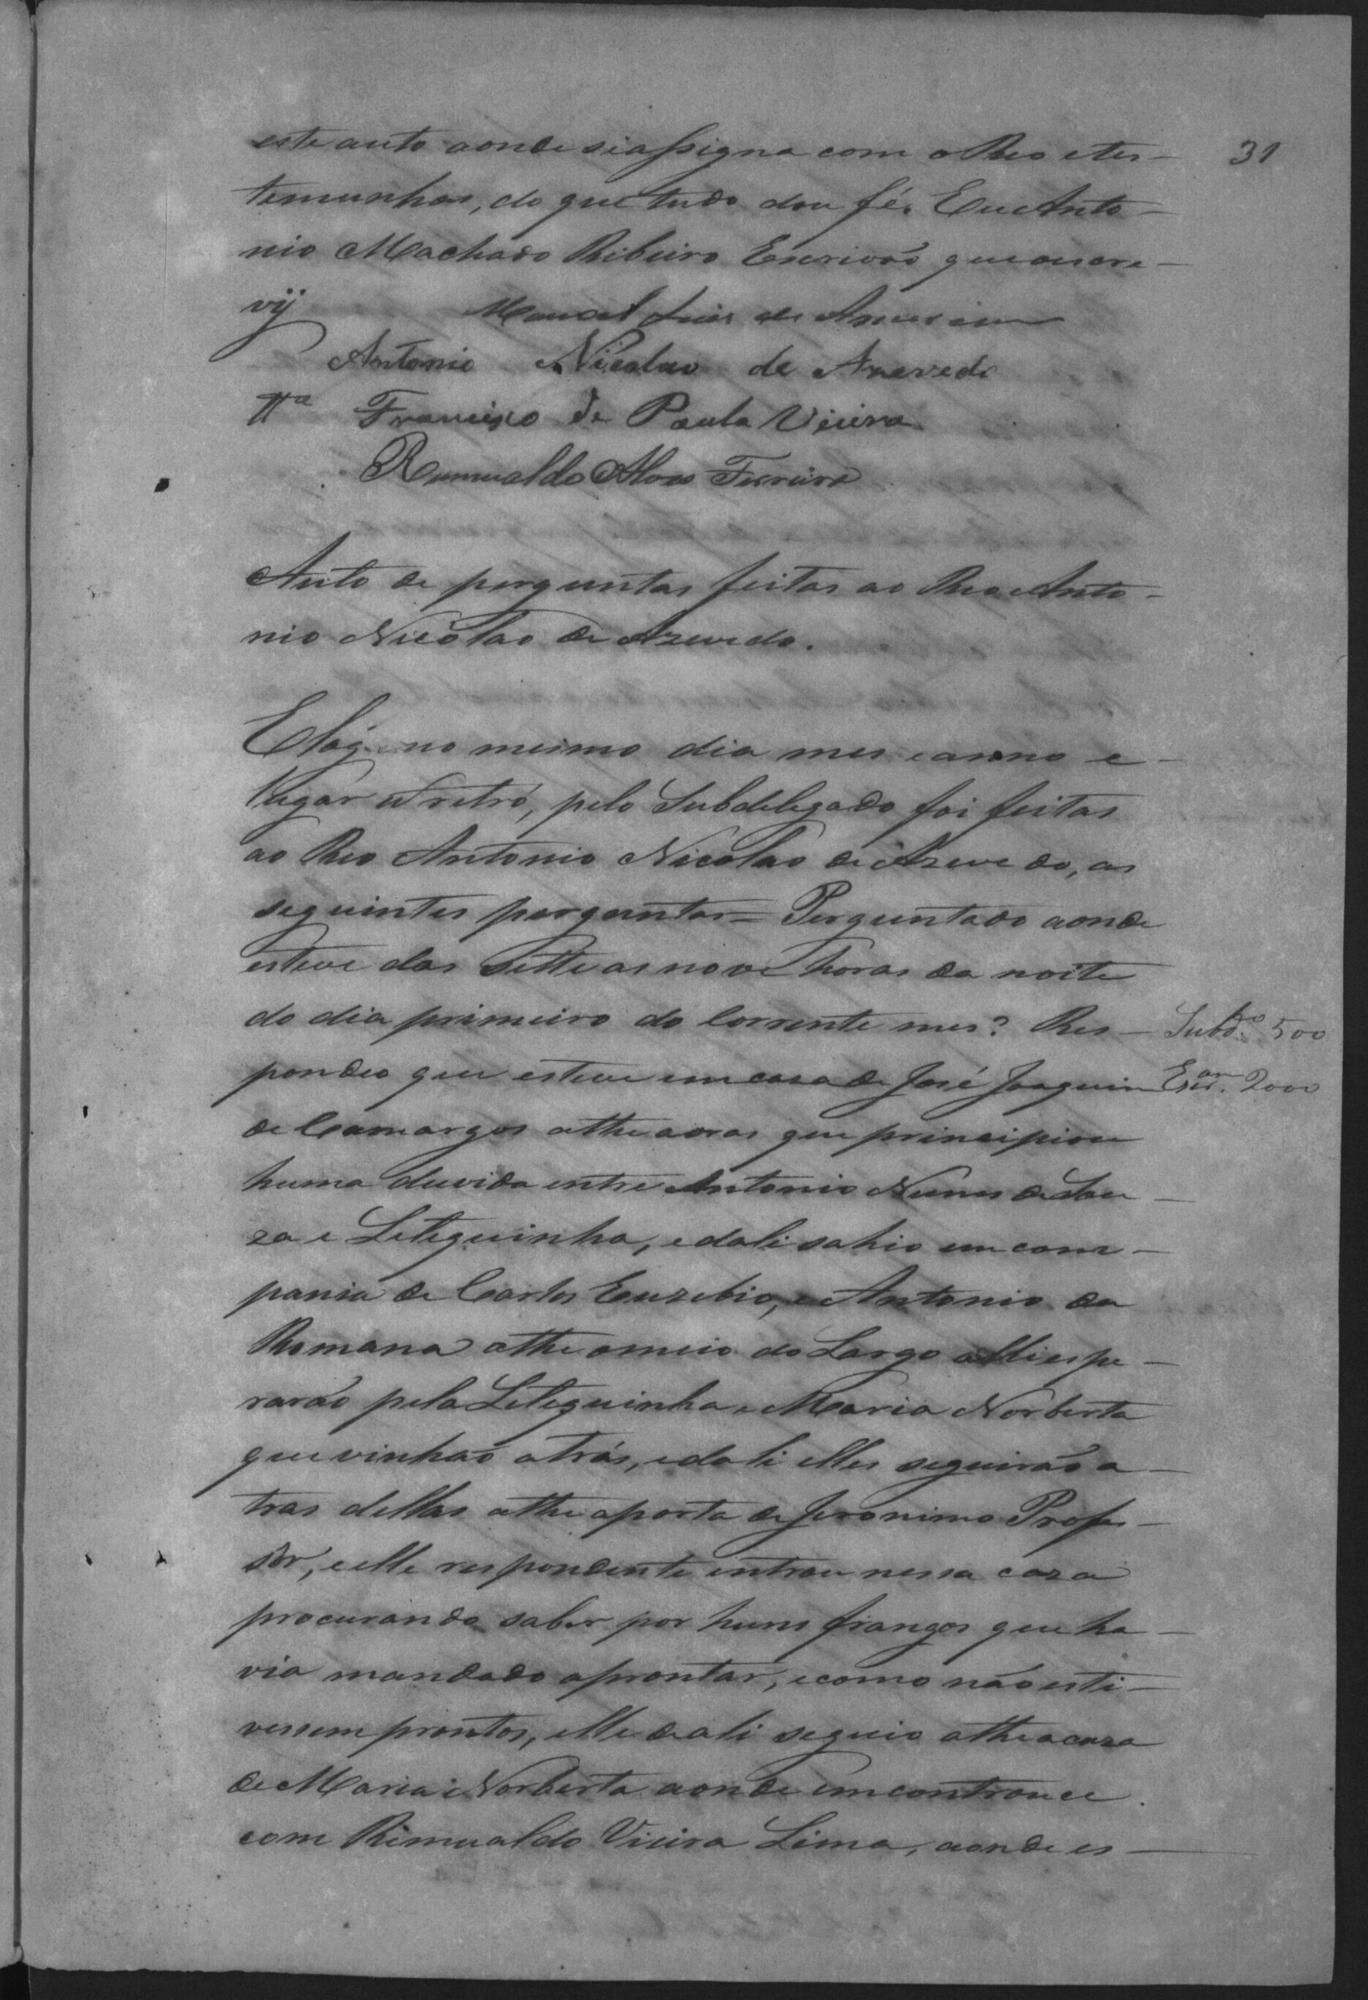 31
este auto aonde se assigna com o Reo e tes-
temunhas, do que tudo dou fé. Eu Anto-
nio Machado Ribeiro Escrivão que escre-
vy
Manoel Luis de
Antonio Nicolao de Azevedo
Ttª Francisco de Paula Vieira
Rumualdo Alves Ferreira
Auto de perguntas feitas ao Reo Anto-
nio Nicolao de Azevedo.
E logo no mesmo dia mes e anno e
lugar retró, pelo Subdelegado foi feitas
ao Reo Antonio Nicolao de Azevedo, as
seguintes perguntas = Perguntado aonde
esteve das sette as nove horas da noite
do dia primeiro do corrente mes? Res-
Subdº 500
pondeo que esteve em caza de José Joaquim
Escram. 2000
de Camargos athe aoras que principiou
huma duvida entre Antonio Nunes de Sou-
za e Letiguinha, e dali sahio em com-
pania de Carlos Euzebio, e Antonio da
Romana athe o meio do Largo alli espe-
rarão pela Letiguinha e Maria Norberta
que vinhão atrás, e dali elles seguirão a-
tras dellas athe a porta de Jeronimo Profes-
sôr, e elle respondente entrou nessa caza
procurando saber por huns frangos que ha-
via mandado aprontar, e como não esti-
vessem prontos, elle dali seguio athe a caza
de Maria Norberta aonde emcontrouce
com Rimualdo Vieira Lima, aonde es-